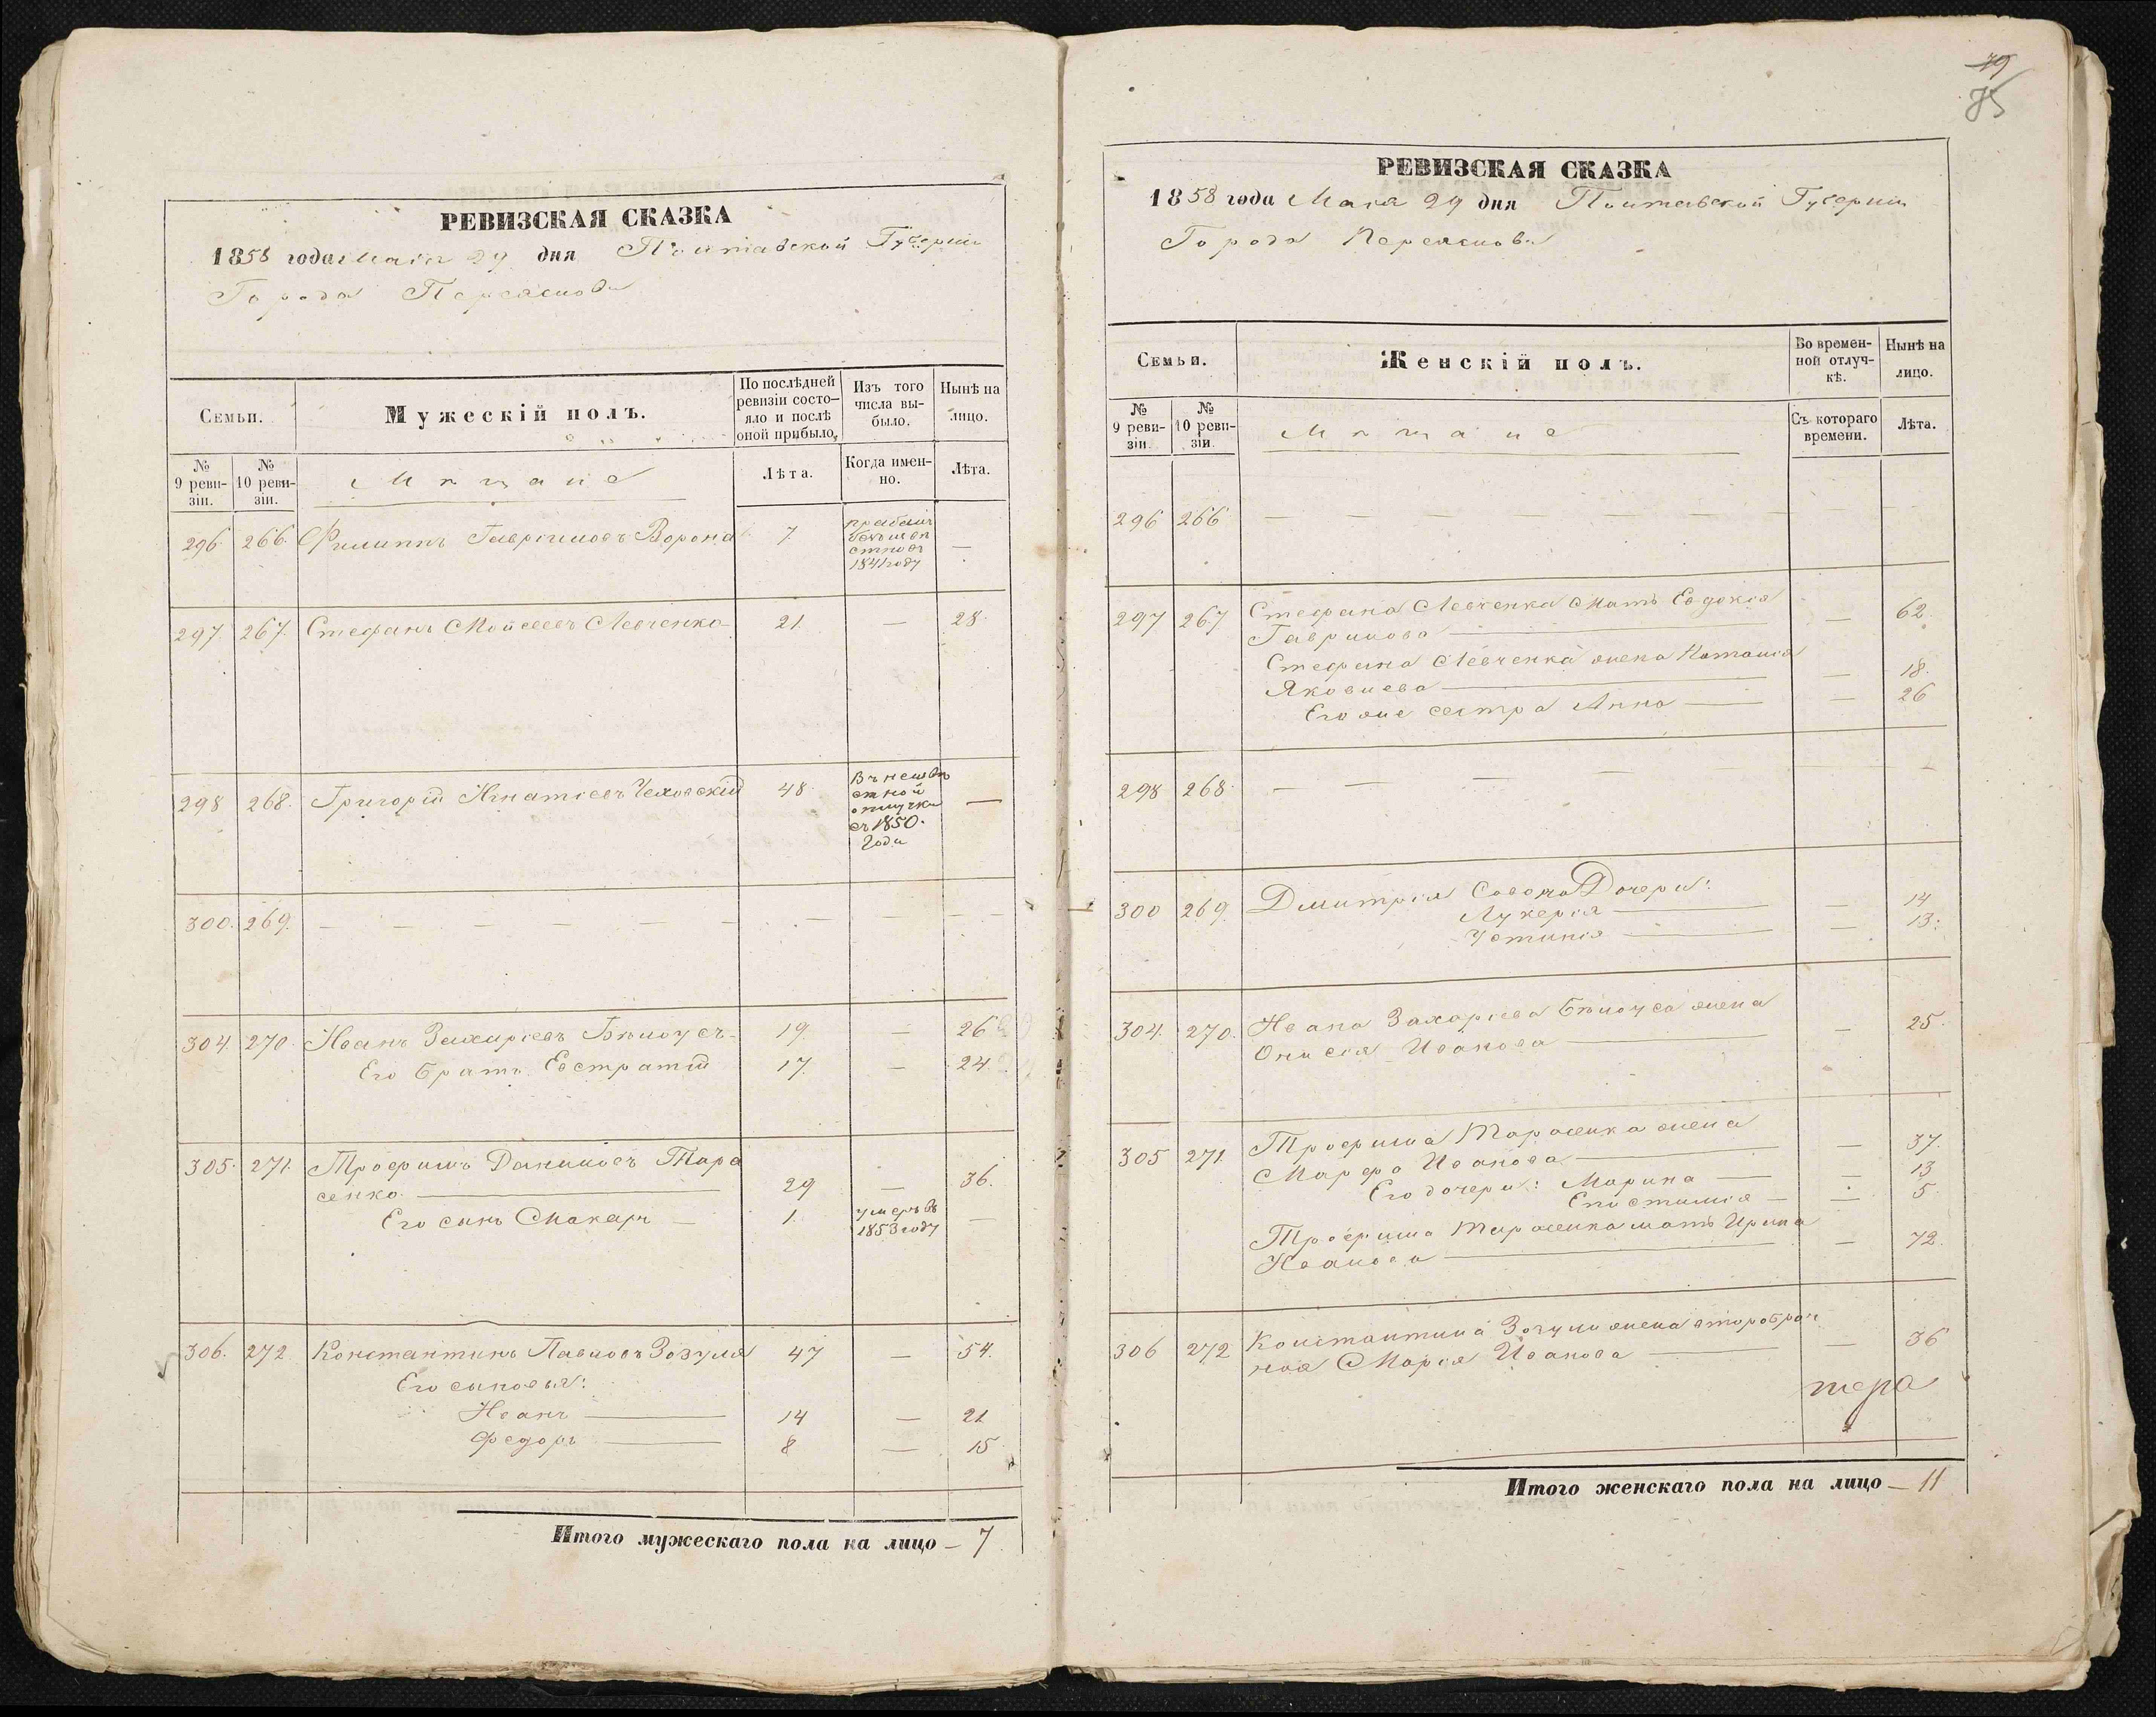 РЕВИЗСКАЯ СКАЗКА
1858 года Мая 29 дня Полтавской Губерніи
Города Переяслова
Семьи.
Мужескій полъ.
По послѣдней ревизіи состо-
яло и послѣ
оной прибыло,
Изъ того
числа вы-
было.
Нынѣ на
лицо.
№
9 реви-
зіи.
№
10 реви-
зіи.
Мѣщане
Лѣта.
Когда имен-
но.
Лѣта.
296 266. Филиппъ Гавриловъ Ворона 7 —
1841 году
297. 267. Стефанъ Мойсеевъ Левченко 21. — 28.
298 268. Григорій Игнатіевъ Чеховскій 48 Въ неизвѣ
стной
отлучкѣ
съ 1850.
года —
300. 269. — — — — — — — — —
304. 270. Иванъ Захаріевъ Бѣлоусъ 19. — 26
Его братъ Евстратій 17. — 24.
305. 271. Трофимъ Даниловъ Тара
сенко. — 29 — 36.
Его сынъ Макаръ — 1. умеръ въ
1853 году —
306. 272 Константинъ Павловъ Зозуля 47 — 54.
Его сыновья:
Иванъ — 14 — 21
Федоръ — 8 — 15
Итого мужескаго пола на лицо — 7
79
85
РЕВИЗСКАЯ СКАЗКА
1858 года Мая 29 дня Полтавской Губерніи
Города Переяслова
Семьи.
Женскій полъ.
Во времен-
ной отлуч-
кѣ.
Нынѣ на
лицо.
№
9 реви-
зіи.
№
10 реви-
зіи.
Мѣщане
Съ котораго
времени.
Лѣта.
296 266 — — — — — —
297 267 Стефана Левченка мать Евдокія
Гаврилова — — 62.
Стефана Левченка жена Наталія
Яковлева — — 18.
Его же сестра Анна — — 26
298 268 — — — — — —
300 269. Дмитрія Дочери:
Лукерія — — 14
Устинія — — 13.
304. 270. Ивана Захаріева Бѣлоуса жена
Онисія Иванова — — 25.
305 271. Трофима Тарасенка жена
Марфа Иванова — — 37.
Его дочери: Марина — — 13
Епистимія — — 5.
Трофима Тарасенка мать Ирина
Иванова — — 72.
306 272 Константина Зозули жена второбрач
ная Марія Иванова — — 36
Итого женскаго пола на лицо — 11